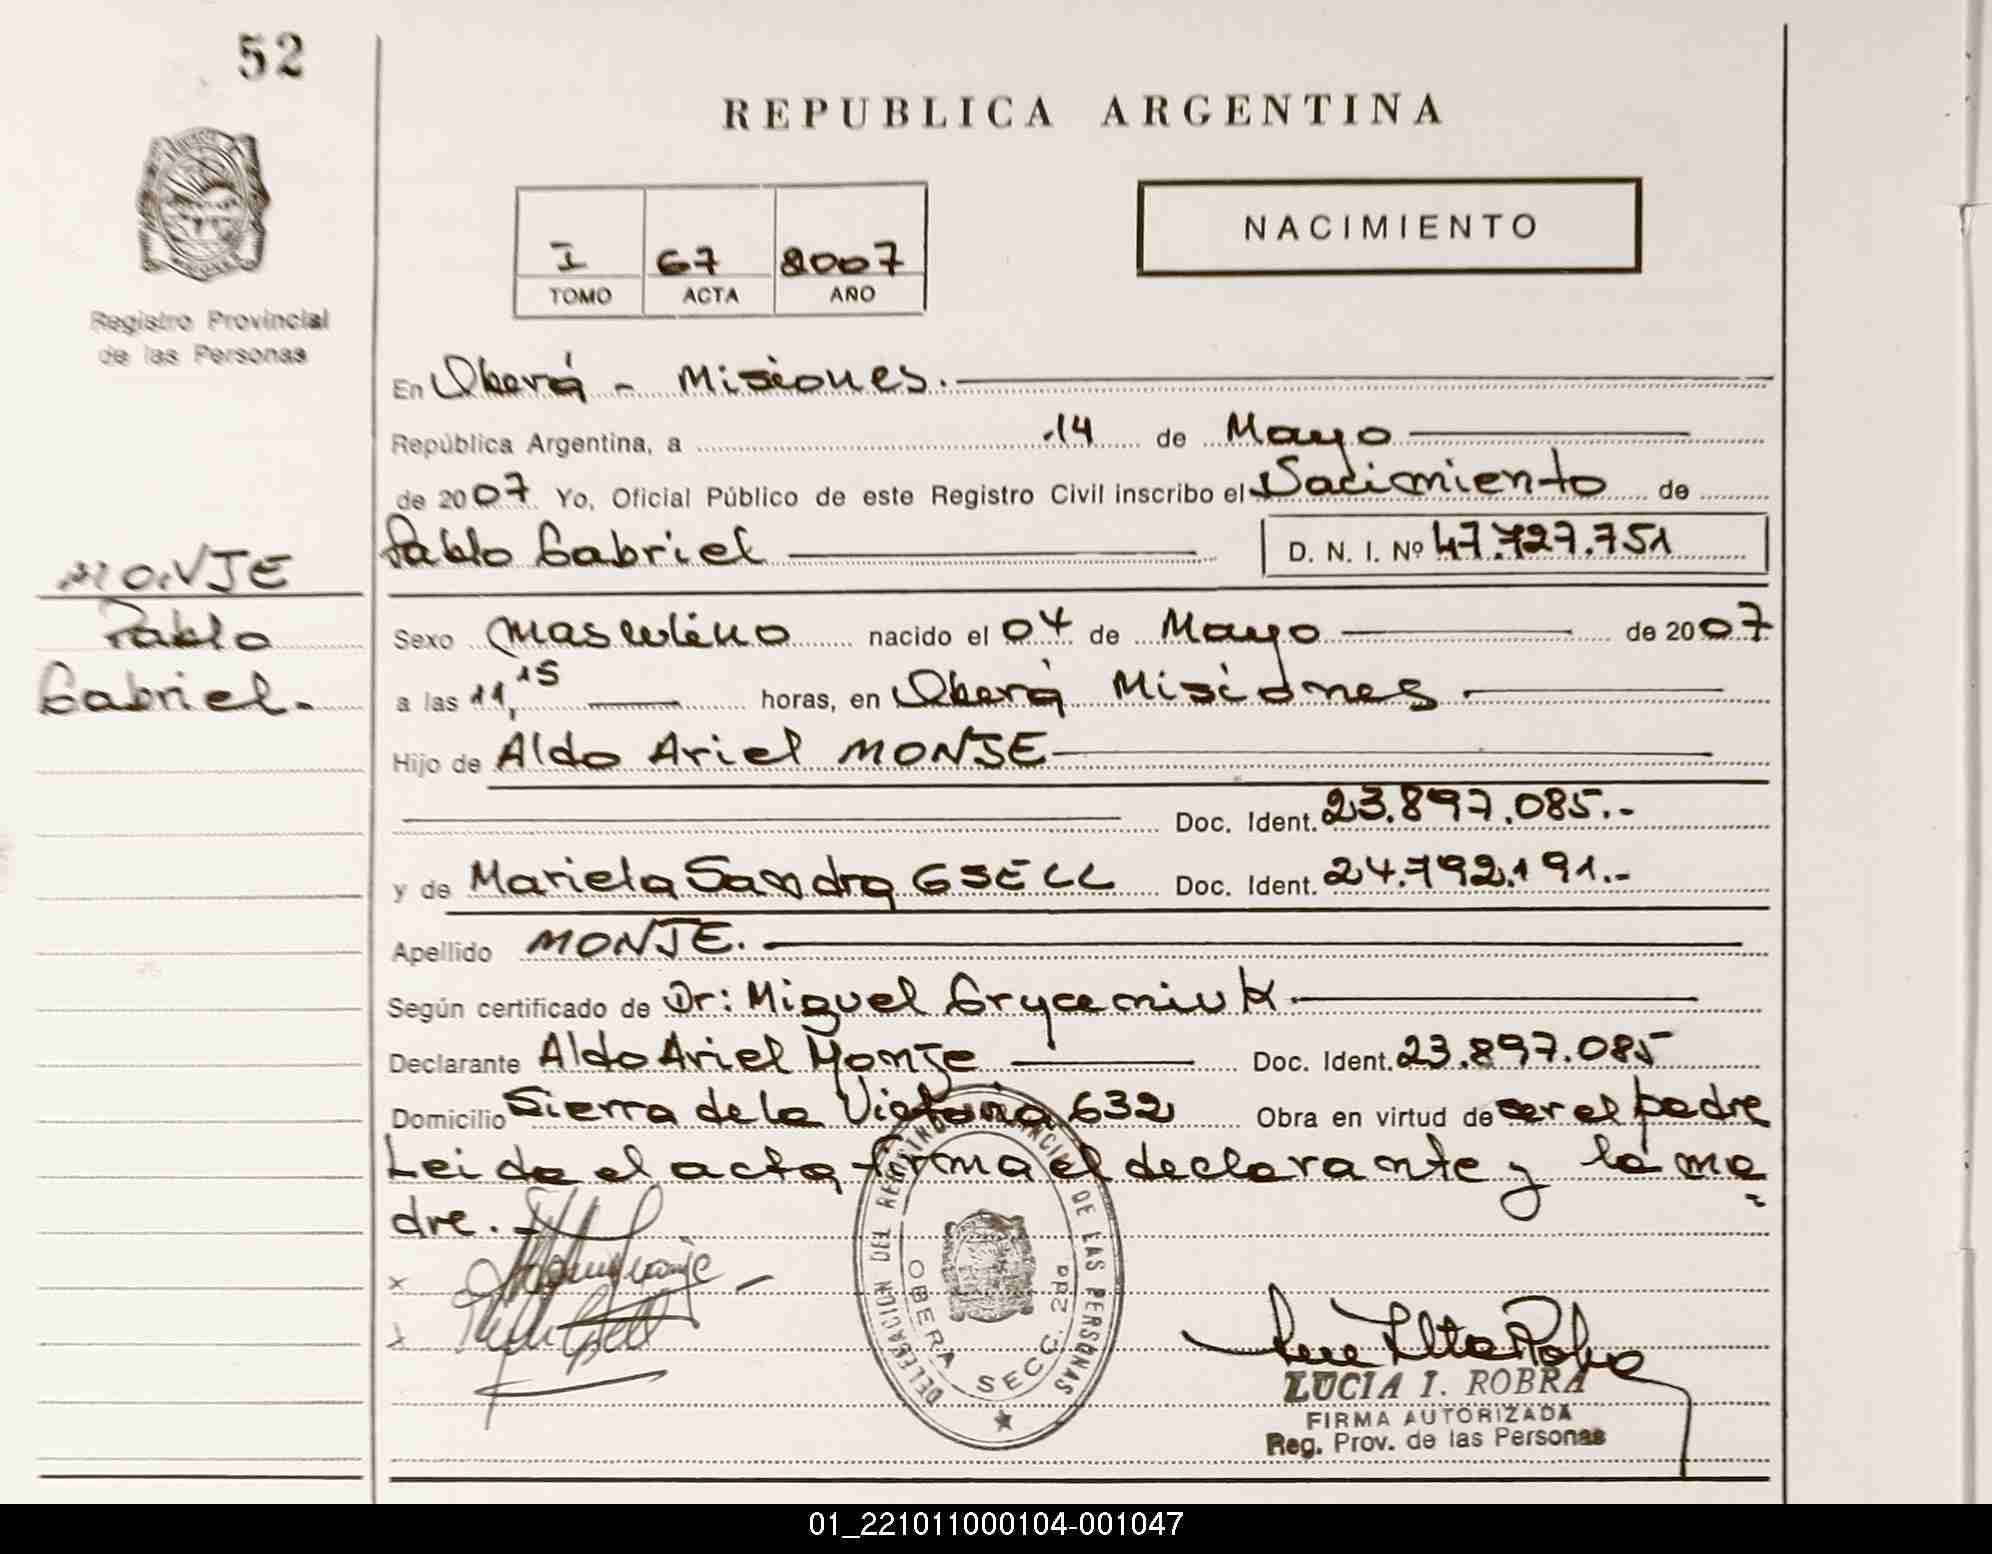 52
REPUBLICA ARGENTINA
NACIMIENTO
I 67 2007
TOMO ACTA AÑO
Registro Provincial
de las Personas
En Oberá - Misiones.
República Argentina, a 14 de Mayo
de 2007 Yo, Oficial Público de este Registro Civil inscribo el Nacimiento de
Pablo Gabriel D. N. I. Nº 47.727.751
MONJE
Pablo
Gabriel.-
Sexo Masculino nacido el 04 de Mayo de 2007
a las 11,15 horas, en Oberá Misiones
Hijo de Aldo Ariel MONJE
Doc. Ident. 23.897.085.-
y de Mariela Sandra GSELL Doc. Ident. 24.792.191.-
Apellido MONJE.
Según certificado de Dr: Miguel Gryceniuk
Declarante Aldo Ariel Monje Doc. Ident. 23.897.085
Domicilio Sierra de la Victoria 632 Obra en virtud de ser el padre
Leida el acta firma el declarante y la ma
dre.-
x
x
DELEGACION DEL REGISTRO PROVINCIAL DE LAS PERSONAS
OBERA SECC. 2da
LUCIA I. ROBRA
FIRMA AUTORIZADA
Reg. Prov. de las Personas
01_221011000104-001047